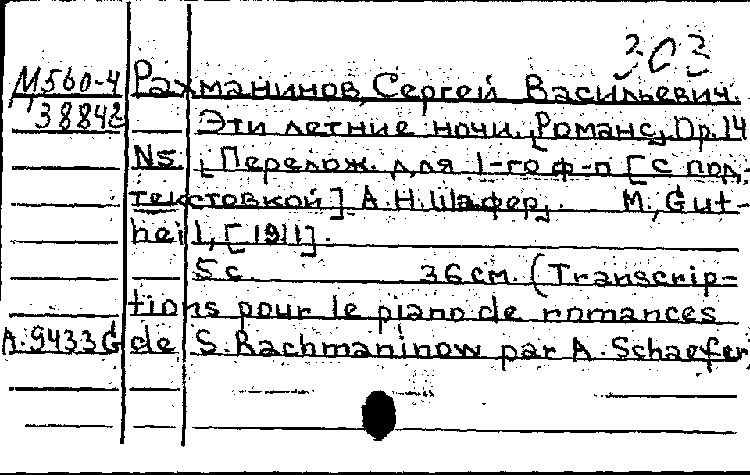 303
М560-4 Рахманинов, Сергей Васильевич.
38842 Эти летние ночи. [Романс], Op. 14
N5. [Перелож. для 1-го ф-п [с под-
текстовкой] А.Н. Шафер]. М., Gut-
heil, [1911].
5 с. 36 см. (Transcrip-
tions pour le piano de romances
A. 9433 G de S. Rachmaninow par A. Schaefer)